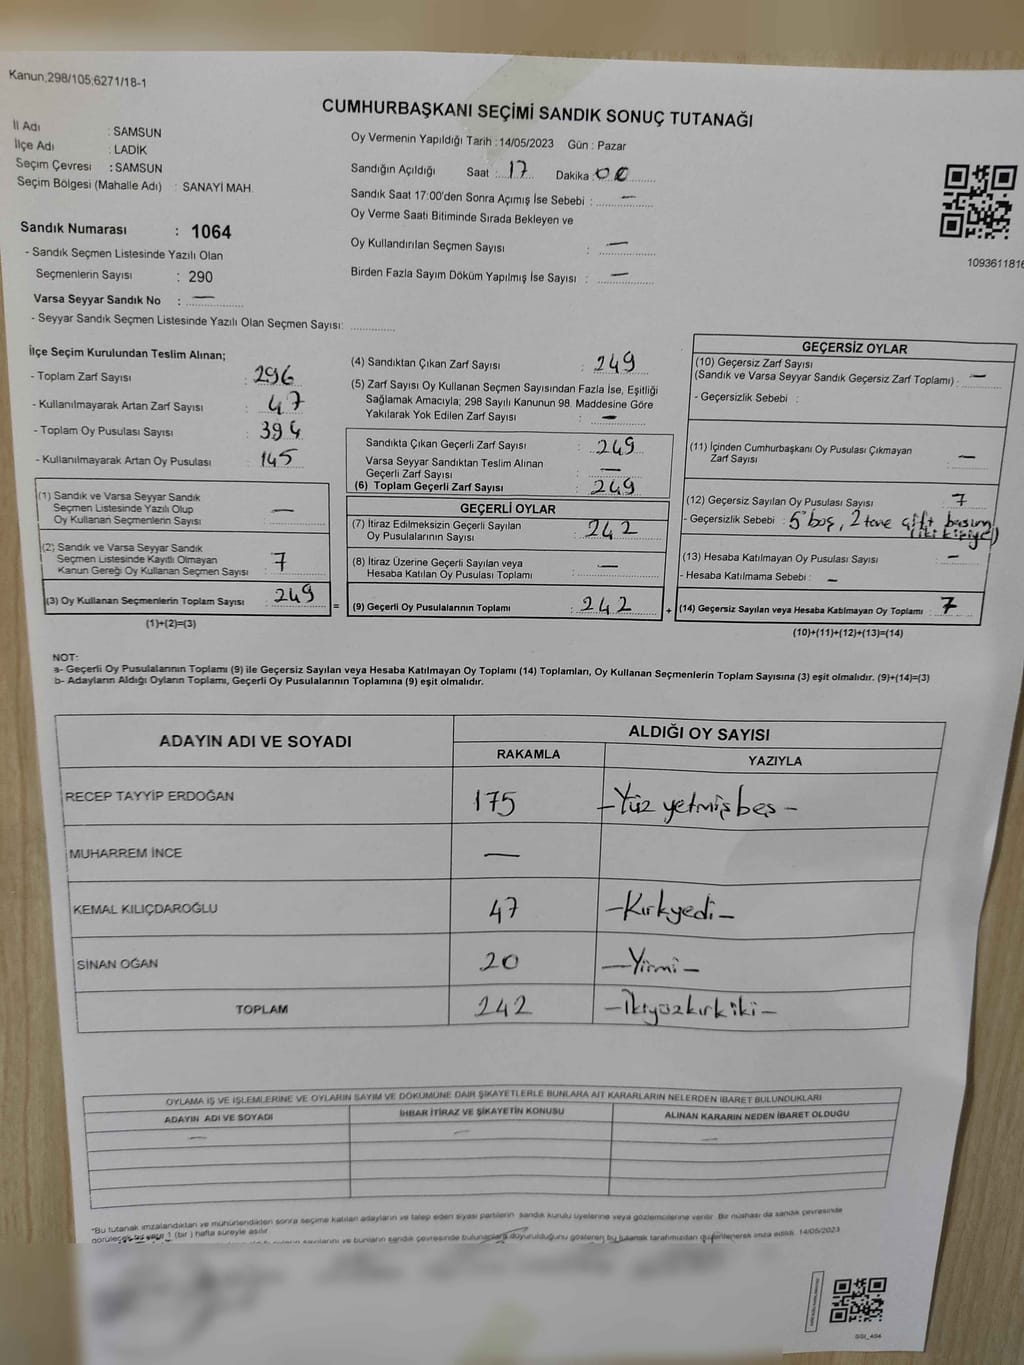 Kanun;298/105;6271/18-1
CUMHURBAŞKANI SEÇİMİ SANDIK SONUÇ TUTANAĞI
İl Adı : SAMSUN
İlçe Adı : LADİK
Seçim Çevresi : SAMSUN
Seçim Bölgesi (Mahalle Adı) : SANAYİ MAH.
Oy Vermenin Yapıldığı Tarih :14/05/2023 Gün : Pazar
Sandığın Açıldığı Saat : 17 Dakika : 00
Sandık Saat 17:00'den Sonra Açımış İse Sebebi : —
Oy Verme Saati Bitiminde Sırada Bekleyen ve
Oy Kullandırılan Seçmen Sayısı : —
Birden Fazla Sayım Döküm Yapılmış İse Sayısı : —
1093611816
Sandık Numarası : 1064
- Sandık Seçmen Listesinde Yazılı Olan
Seçmenlerin Sayısı : 290
Varsa Seyyar Sandık No : —
- Seyyar Sandık Seçmen Listesinde Yazılı Olan Seçmen Sayısı: ............
İlçe Seçim Kurulundan Teslim Alınan;
- Toplam Zarf Sayısı : 296
- Kullanılmayarak Artan Zarf Sayısı : 47
- Toplam Oy Pusulası Sayısı : 394
- Kullanılmayarak Artan Oy Pusulası : 145
(1) Sandık ve Varsa Seyyar Sandık
Seçmen Listesinde Yazılı Olup
Oy Kullanan Seçmenlerin Sayısı : —
(2) Sandık ve Varsa Seyyar Sandık
Seçmen Listesinde Kayıtlı Olmayan
Kanun Gereği Oy Kullanan Seçmen Sayısı : 7
(3) Oy Kullanan Seçmenlerin Toplam Sayısı : 249
(1)+(2)=(3)
(4) Sandıktan Çıkan Zarf Sayısı : 249
(5) Zarf Sayısı Oy Kullanan Seçmen Sayısından Fazla İse, Eşitliği
Sağlamak Amacıyla; 298 Sayılı Kanunun 98. Maddesine Göre
Yakılarak Yok Edilen Zarf Sayısı : —
Sandıkta Çıkan Geçerli Zarf Sayısı : 249
Varsa Seyyar Sandıktan Teslim Alınan
Geçerli Zarf Sayısı : —
(6) Toplam Geçerli Zarf Sayısı : 249
GEÇERLİ OYLAR
(7) İtiraz Edilmeksizin Geçerli Sayılan
Oy Pusulalarının Sayısı : 242
(8) İtiraz Üzerine Geçerli Sayılan veya
Hesaba Katılan Oy Pusulası Toplamı : —
= (9) Geçerli Oy Pusulalarının Toplamı : 242
GEÇERSİZ OYLAR
(10) Geçersiz Zarf Sayısı
(Sandık ve Varsa Seyyar Sandık Geçersiz Zarf Toplamı) : —
- Geçersizlik Sebebi :
(11) İçinden Cumhurbaşkanı Oy Pusulası Çıkmayan
Zarf Sayısı : —
(12) Geçersiz Sayılan Oy Pusulası Sayısı : 7
- Geçersizlik Sebebi : 5 boş, 2 tane çift basım
(iki kişiye)
(13) Hesaba Katılmayan Oy Pusulası Sayısı : —
- Hesaba Katılmama Sebebi : —
+ (14) Geçersiz Sayılan veya Hesaba Katılmayan Oy Toplamı : 7
(10)+(11)+(12)+(13)=(14)
NOT:
a- Geçerli Oy Pusulalarının Toplamı (9) ile Geçersiz Sayılan veya Hesaba Katılmayan Oy Toplamı (14) Toplamları, Oy Kullanan Seçmenlerin Toplam Sayısına (3) eşit olmalıdır. (9)+(14)=(3)
b- Adayların Aldığı Oyların Toplamı, Geçerli Oy Pusulalarının Toplamına (9) eşit olmalıdır.
ADAYIN ADI VE SOYADI ALDIĞI OY SAYISI
RAKAMLA YAZIYLA
RECEP TAYYİP ERDOĞAN 175 –Yüz yetmişbeş–
MUHARREM İNCE —
KEMAL KILIÇDAROĞLU 47 –Kırkyedi–
SİNAN OĞAN 20 –Yirmi–
TOPLAM 242 –İkiyüzkırkiki–
OYLAMA İŞ VE İŞLEMLERİNE VE OYLARIN SAYIM VE DÖKÜMÜNE DAİR ŞİKAYETLERLE BUNLARA AİT KARARLARIN NELERDEN İBARET BULUNDUKLARI
ADAYIN ADI VE SOYADI İHBAR İTİRAZ VE ŞİKAYETİN KONUSU ALINAN KARARIN NEDEN İBARET OLDUĞU
— — —
*Bu tutanak imzalandıktan ve mühürlendikten sonra seçime katılan adayların ve talep eden siyasi partilerin sandık kurulu üyelerine veya gözlemcilerine verilir. Bir nüshası da sandık çevresinde
görülecek bir yere 1 (bir ) hafta süreyle asılır.
sayılarını ve bunların sandık çevresinde bulunanlara duyurulduğunu gösteren bu tutanak tarafımızdan düzenlenerek imza edildi. 14/05/2023